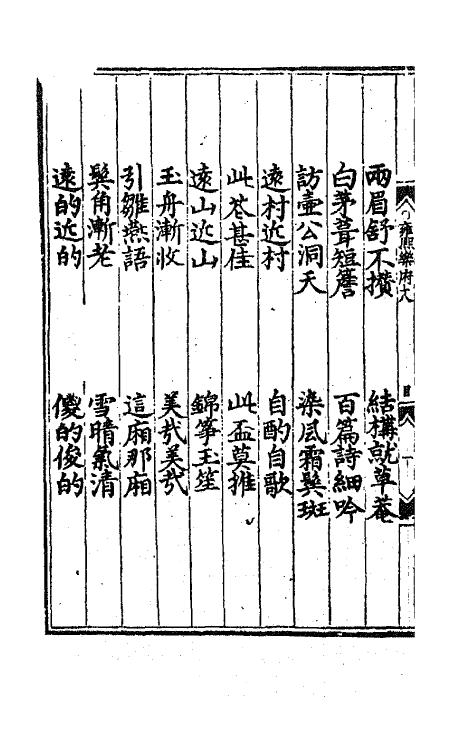 雍熈樂府大
目
兩眉舒不攢　結構就草菴
白茅葺短簷　百篇詩細吟
訪壷公洞天　染風霜鬓斑
遠村近村　自酌自歌
此荅甚佳　此盃莫推
遠山近山　錦筝玉笙
玉舟漸收　美哉美哉
引雛燕語　這廂那廂
鬓角漸老　雪晴氣清
遠的近的　傻的俊的